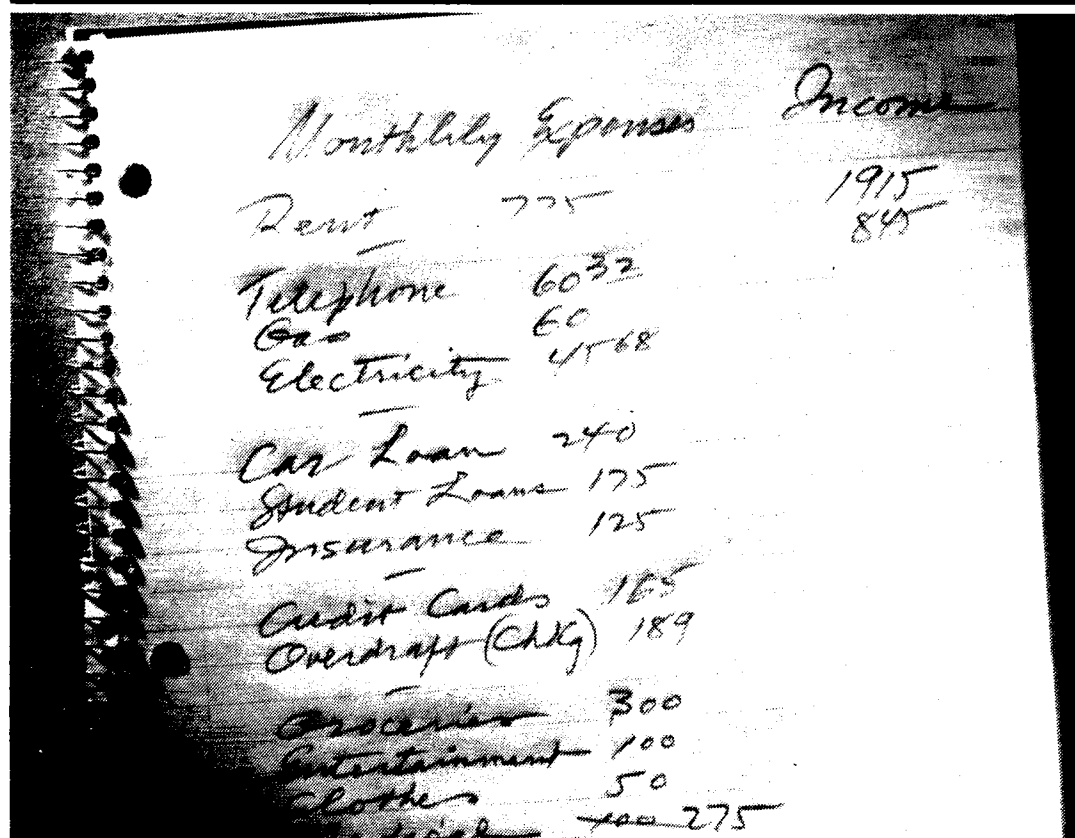 Monthlily Expenses Income
Rent 775 1915
845
Telephone 60 32
Gas 60
Electricity 45 68
Car Loan 240
Student Loans 175
Insurance 125
Credit Cards 165
Overdraft (ChKg) 189
Groceries 300
Entertainment 100
Clothes 50
100 275